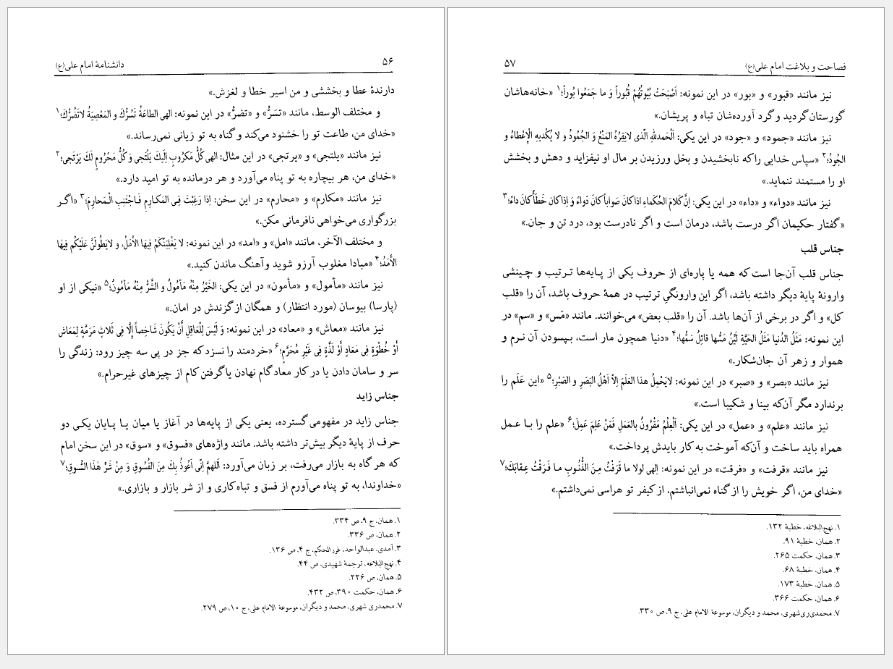 ۵۶ دانشنامهٔ امام علی(ع)
دارندهٔ عطا و بخششی و من اسیر خطا و لغزش.»
و مختلف الوسط، مانند «تسرّ» و «تضرّ» در این نمونه: الهی الطاعَةُ تَسُرُّكَ و المَعْصِیَةُ لاتَضُرُّكَ؛۱
«خدای من، طاعت تو را خشنود می‌کند و گناه به تو زیانی نمی‌رساند.»
نیز مانند «یلتجی» و «یرتجی» در این مثال: الهی کُلُّ مَکْروبٍ اِلَیْكَ یَلْتَجی وَ کُلُّ مَحْرُومٍ لَكَ یَرْتَجی؛۲
«خدای من، هر بیچاره به تو پناه می‌آورد و هر درمانده به تو امید دارد.»
نیز مانند «مکارم» و «محارم» در این سخن: اِذا رَغِبْتَ فِی المَکارِمِ فَاجْتَنِبِ الْمَحارِمَ؛۳ «اگر
بزرگواری می‌خواهی نافرمانی مکن.»
و مختلف الآخر، مانند «امل» و «امد» در این نمونه: لا یَغْلِبَنَّکُمْ فِیهَا الأمَلُ، و لایَطُولَنَّ عَلَیْکُم فِیهَا
الأمَدُ؛۴ «مبادا مغلوب آرزو شوید و آهنگ ماندن کنید.»
نیز مانند «مأمول» و «مأمون» در این یکی: الخَیْرُ مِنْهُ مَأمُولٌ و الشَّرُّ مِنْهُ مَأمُونٌ؛۵ «نیکی از او
(پارسا) بیوسان (مورد انتظار) و همگان از گزندش در امان.»
نیز مانند «معاش» و «معاد» در این نمونه: وَ لَیْسَ لِلْعاقِلِ أَنْ یَکُونَ شاخِصاً إلّا فِی ثَلاثٍ مَرَمَّةٍ لِمَعاشٍ
أَوْ خُطْوَةٍ فِی مَعادٍ أَوْ لَذَّةٍ فِی غَیْرِ مُحَرَّمٍ؛۶ «خردمند را نسزد که جز در پی سه چیز رود: زندگی را
سر و سامان دادن یا در کار معاد گام نهادن یا گرفتن کام از چیزهای غیرحرام.»
جناس زاید
جناس زاید در مفهومی گسترده، یعنی یکی از پایه‌ها در آغاز یا میان یا پایان یکی دو
حرف از پایهٔ دیگر بیش‌تر داشته باشد. مانند واژه‌های «فسوق» و «سوق» در این سخن امام
که هر گاه به بازار می‌رفت، بر زبان می‌آورد: اَللّهُمَّ اِنّی اَعُوذُ بِكَ مِنَ الفُسُوقِ وَ مِنْ شَرِّ هٰذَا السُّوقِ؛۷
«خداوندا، به تو پناه می‌آورم از فسق و تباه‌کاری و از شر بازار و بازاری.»
۱. همان، ج ۹، ص ۳۳۴.
۲. همان، ص ۳۳۶.
۳. آمدی، عبدالواحد، غررالحکم، ج ۴، ص ۱۳۶.
۴. نهج‌البلاغه، ترجمهٔ شهیدی، ص ۴۴.
۵. همان، ص ۲۲۶.
۶. همان، حکمت ۳۹۰، ص ۴۳۲.
۷. محمدی‌ری شهری، محمد و دیگران، موسوعة الامام علی، ج ۱۰، ص ۲۷۹.
فصاحت و بلاغت امام علی(ع) ۵۷
نیز مانند «قبور» و «بور» در این نمونه: أَصْبَحَتْ بُیُوتُهُمْ قُبُوراً وَ ما جَمَعُوا بُوراً؛۱ «خانه‌هاشان
گورستان گردید و گرد آورده‌شان تباه و پریشان.»
نیز مانند «جمود» و «جود» در این یکی: اَلْحَمْدلِلّهِ الَّذی لایَفِرُهُ المَنْعُ وَ الْجُمُودُ و لا یُکْدِیهِ الْإِعْطاءُ و
الجُودُ؛۲ «سپاس خدایی را که نابخشیدن و بخل ورزیدن بر مال او نیفزاید و دهش و بخشش
او را مستمند ننماید.»
نیز مانند «دواء» و «داء» در این یکی: إنَّ کَلامَ الحُکَماءِ اذا کانَ صَواباً کانَ دَواءً وَ اِذا کانَ خَطَأً کانَ داءً؛۳
«گفتار حکیمان اگر درست باشد، درمان است و اگر نادرست بود، درد تن و جان.»
جناس قلب
جناس قلب آن‌جا است که همه یا پاره‌ای از حروف یکی از پایه‌ها ترتیب و چینشی
وارونهٔ پایهٔ دیگر داشته باشد، اگر این وارونگیِ ترتیب در همهٔ حروف باشد، آن را «قلب
کل» و اگر در برخی از آن‌ها باشد. آن را «قلب بعض» می‌خوانند. مانند «مَس» و «سم» در
این نمونه: مَثَلُ الدُّنیا مَثَلُ الحَیَّةِ لَیِّنٌ مَسُّها قاتِلٌ سَمُّها؛۴ «دنیا همچون مار است، بپسودن آن نرم و
هموار و زهر آن جان‌شکار.»
نیز مانند «بصر» و «صبر» در این نمونه: لایَحْمِلُ هذا العَلَمَ اِلّا اَهْلُ البَصَرِ و الصَبْرِ؛۵ «این عَلَم را
برندارد مگر آن‌که بینا و شکیبا است.»
نیز مانند «علم» و «عمل» در این یکی: اَلْعِلْمُ مَقْرُونٌ بِالعَمَلِ فَمَنْ عَلِمَ عَمِلَ؛۶ «علم را با عمل
همراه باید ساخت و آن‌که آموخت به کار بایدش پرداخت.»
نیز مانند «قرفت» و «فرقت» در این نمونه: اِلهی لولا ما قَرَفْتُ مِنَ الذُّنُوبِ ما فَرِقْتُ عِقابَكَ؛۷
«خدای من، اگر خویش را از گناه نمی‌انباشتم، از کیفر تو هراسی نمی‌داشتم.»
۱. نهج‌البلاغه، خطبهٔ ۱۳۲.
۲. همان، خطبهٔ ۹۱.
۳. همان، حکمت ۲۶۵.
۴. همان، خطبهٔ ۶۸.
۵. همان، خطبهٔ ۱۷۳.
۶. همان، حکمت ۳۶۶.
۷. محمدی‌ری‌شهری، محمد و دیگران، موسوعة الامام علی، ج ۹، ص ۳۳۰.